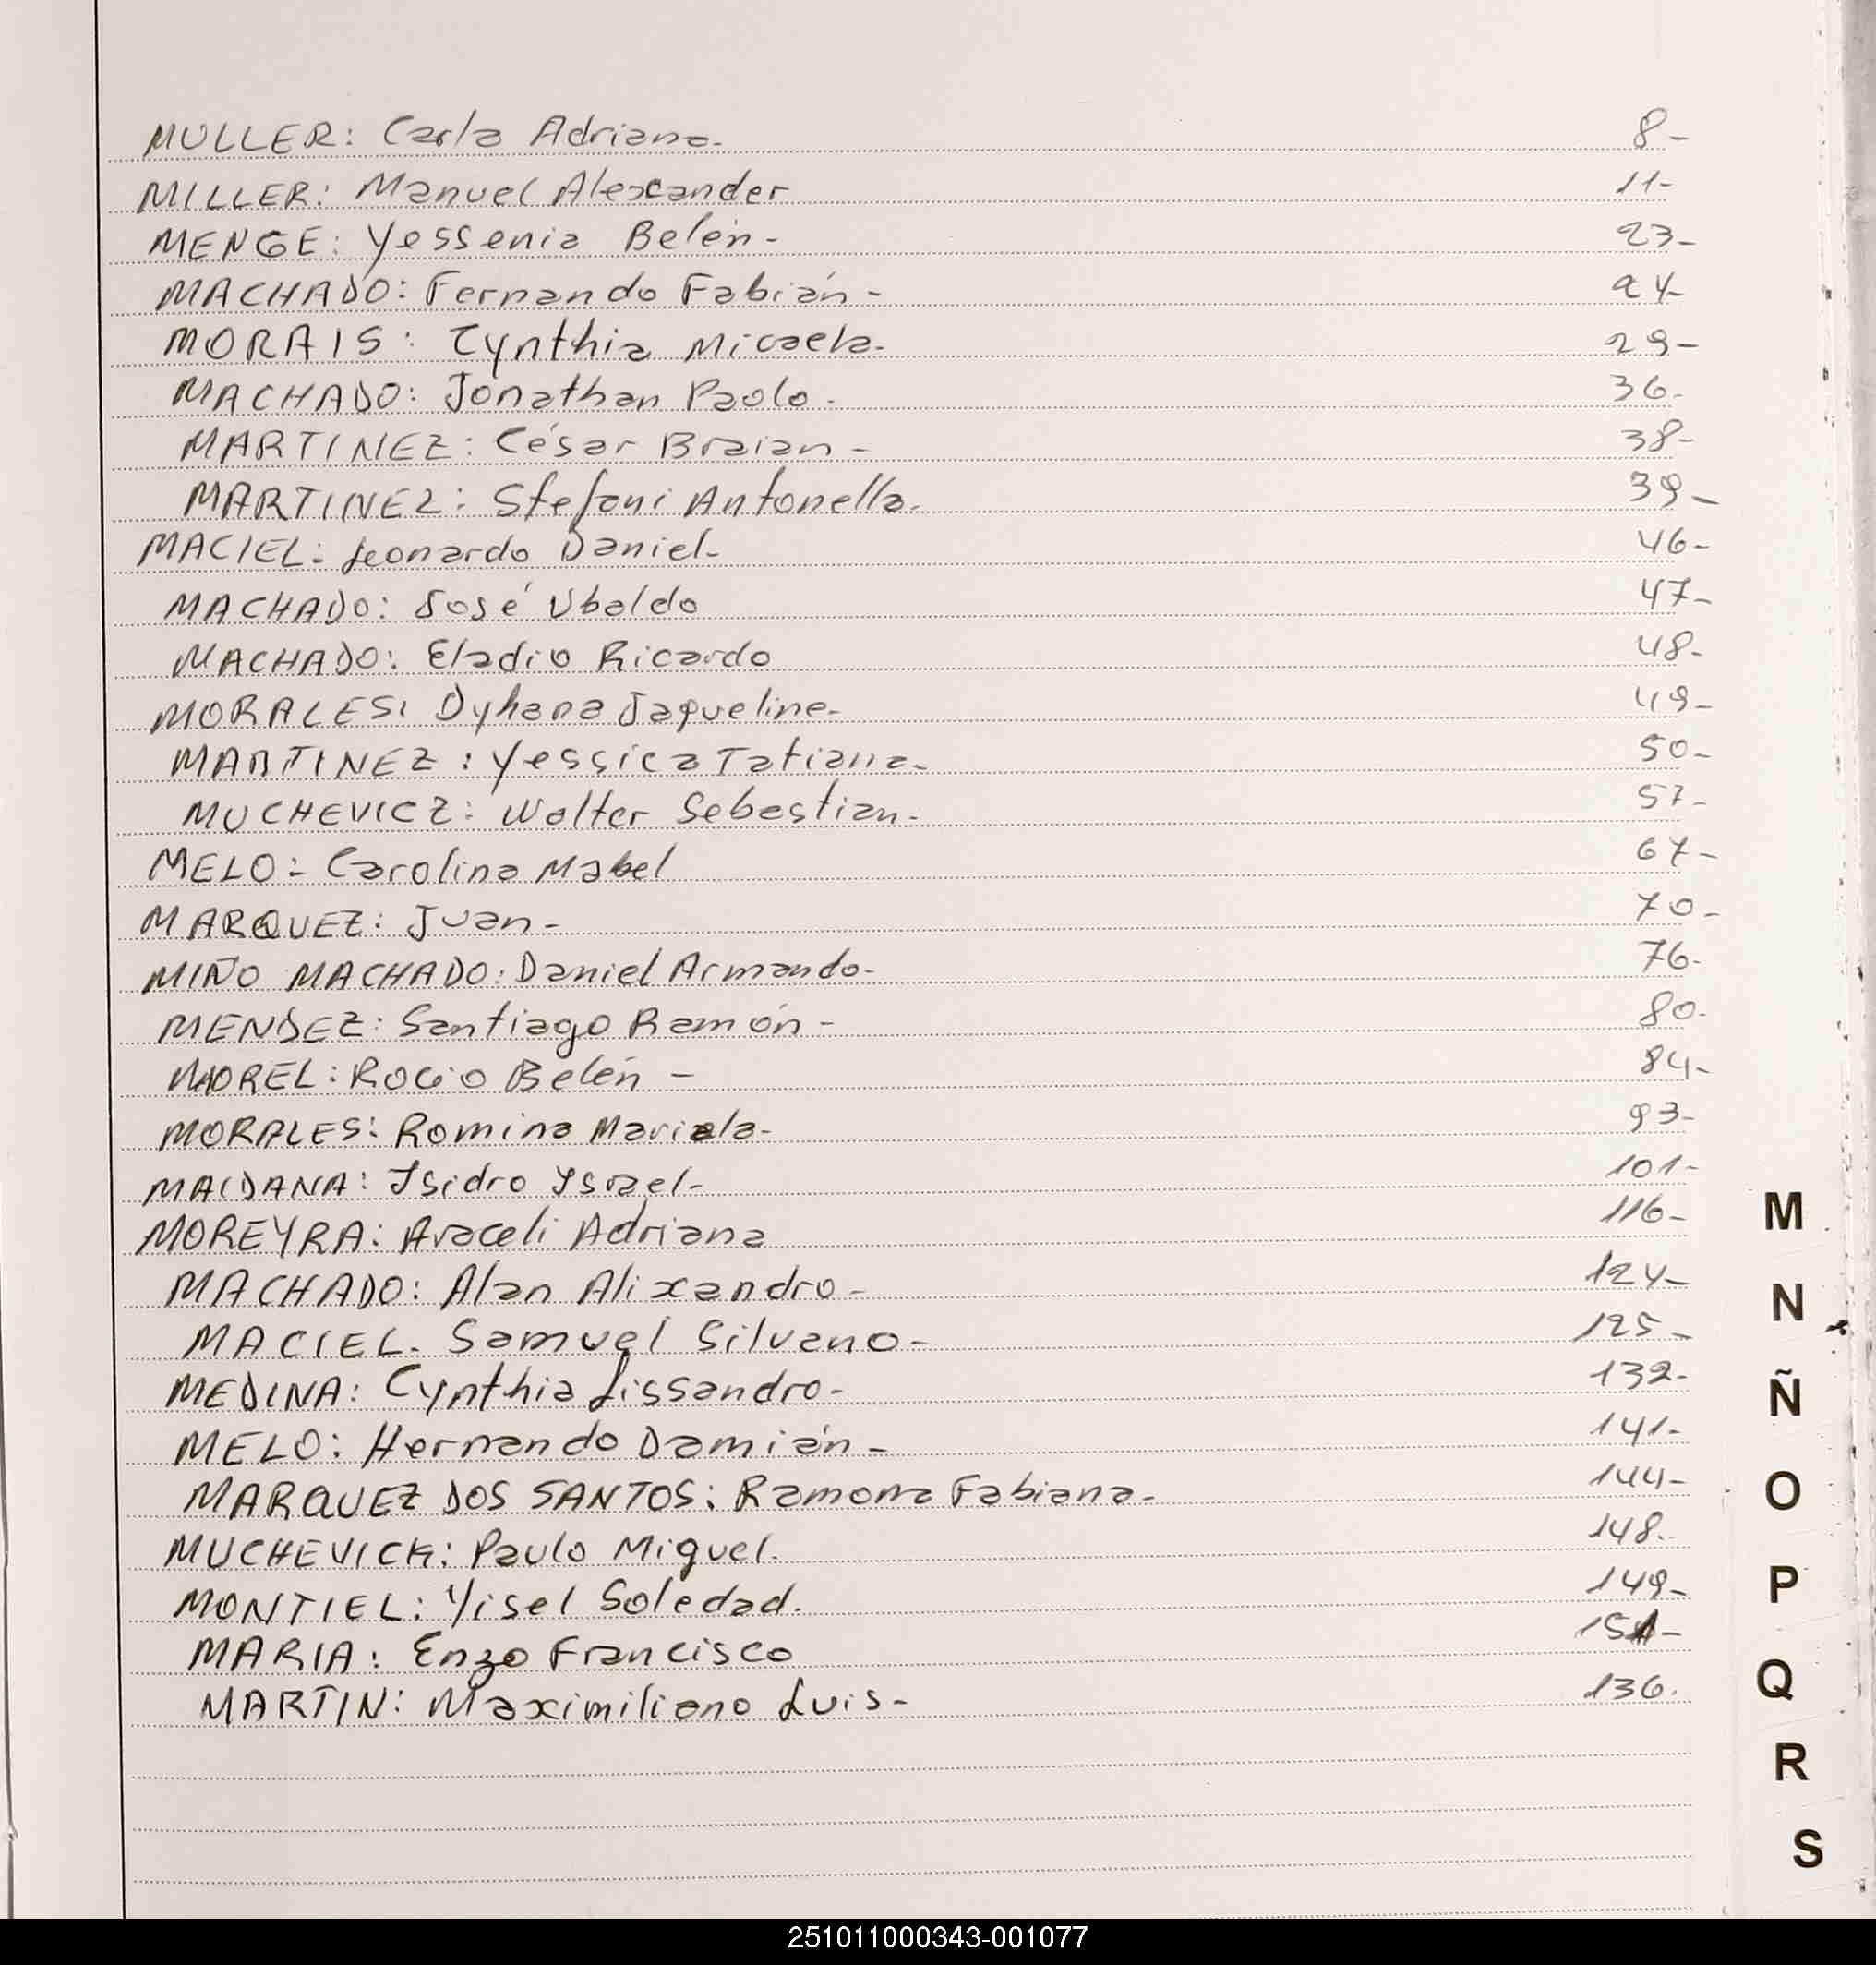 MULLER: Carla Adriana- 8-
MILLER: Manuel Alexander 11-
MENGE: Yessenia Belén- 23-
MACHADO: Fernando Fabián- 24-
MORAIS: Cynthia Micaela- 29-
MACHADO: Jonathan Paolo- 36-
MARTINEZ: César Braian- 38-
MARTINEZ: Stefani Antonella- 39-
MACIEL: Leonardo Daniel- 46-
MACHADO: José Ubaldo 47-
MACHADO: Eladio Ricardo 48-
MORALES: Dyhana Jaqueline- 49-
MARTINEZ: Yessica Tatiana- 50-
MUCHEVICZ: Walter Sebastian- 57-
MELO: Carolina Mabel 67-
MARQUEZ: Juan- 70-
MIÑO MACHADO: Daniel Armando- 76-
MENDEZ: Santiago Ramón- 80-
MOREL: Rocio Belén- 84-
MORALES: Romina Mariela- 93-
MAIDANA: Isidro Ysrael- 101-
MOREYRA: Araceli Adriana 116-
MACHADO: Alan Alixandro- 124-
MACIEL. Samuel Silvano- 125-
MEDINA: Cynthia Lissandro- 132-
MELO: Hernando Damián- 141-
MARQUEZ DOS SANTOS: Ramona Fabiana- 144-
MUCHEVICK: Paulo Miguel. 148-
MONTIEL: Yisel Soledad. 149-
MARIA: Enzo Francisco 151-
MARTIN: Maximiliano Luis- 136.
M
N
Ñ
O
P
Q
R
S
251011000343-001077